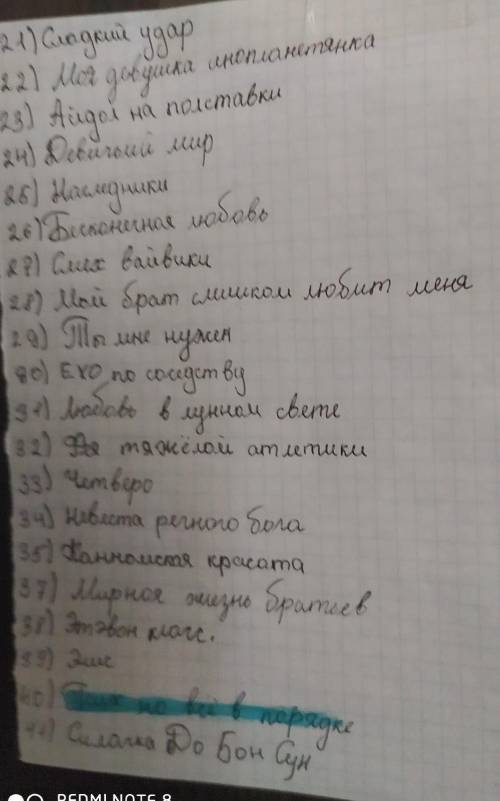 21) Сладкий удар
22) Моя девушка инопланетянка
23) Айдол на полставки
24) Девичьий мир
25) Наследники
26) Бесконечная любовь
27) Смех вайкики
28) Мой брат слишком любит меня
29) Ты мне нужен
30) EXO по соседству
31) Любовь в лунном свете
32) тяжёлой атлетики
33) Четверо
34) Невеста речного бога
35) красата
37) Мирная жизнь братьев
38)
39)
40) но всё в порядке
41) Силачка До Бон Сун
REDMI NOTE 8